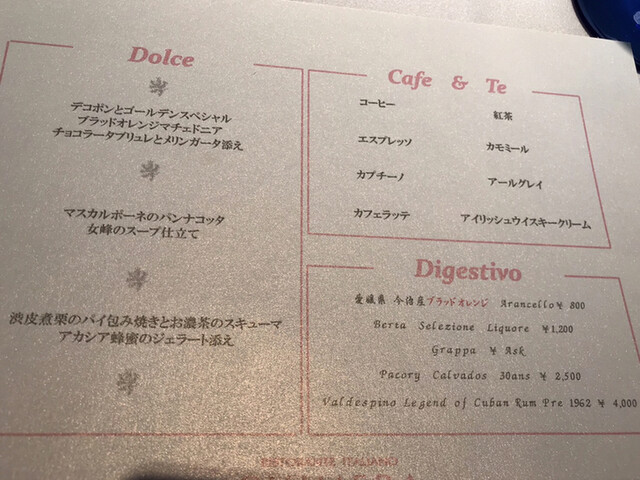 Dolce
デコポンとゴールデンスペシャル
ブラッドオレンジマチェドニア
チョコラータブリュレとメリンガータ添え
マスカルポーネのパンナコッタ
女峰のスープ仕立て
渋皮煮栗のパイ包み焼きとお濃茶のスキューマ
アカシア蜂蜜のジェラート添え
Cafe & Te
コーヒー
紅茶
エスプレッソ
カモミール
カプチーノ
アールグレイ
カフェラッテ
アイリッシュウイスキークリーム
Digestivo
愛媛県 今治産ブラッドオレンジ Arancello ¥ 800
Berta Selezione Liquore ¥1,200
Grappa ¥ Ask
Pacory Calvados 30ans ¥ 2,500
Valdespino Legend of Cuban Rum Pre 1962 ¥ 4,000
RISTORANTE ITALIANO